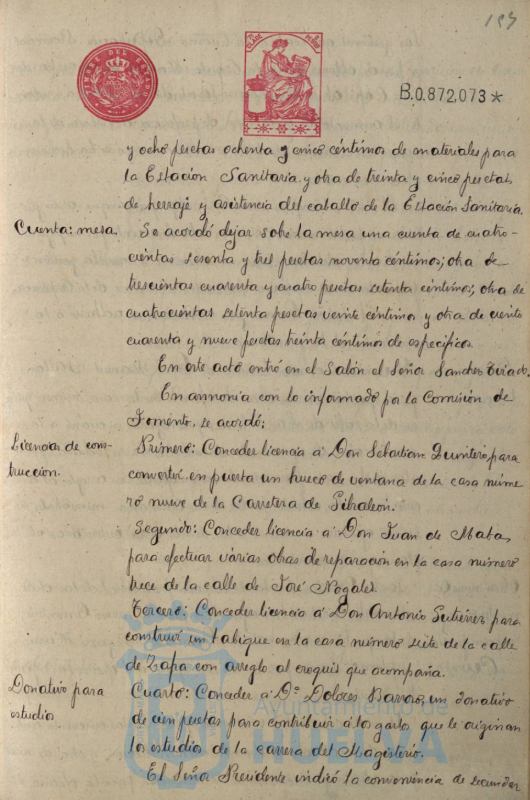 TIMBRE DEL ESTADO
CLASE
B.0.872,073*
y ocho pesetas ochenta y cinco céntimos de materiales para
la Estación Sanitaria y otra de treinta y cinco pesetas
de herraje y asistencia del caballo de la Estación Sanitaria.
Cuenta: mesa.
Se acordó dejar sobe la mesa una cuenta de cuatro-
cientas sesenta y tres pesetas noventa céntimos; otra de
trescientas cuarenta y cuatro pesetas setenta céntimos; otra de
cuatrocientas setenta pesetas veinte céntimos y otra de ciento
cuarenta y nueve pesetas treinta céntimos de específicos.
En este acto entró en el Salón el Señor Sanchez
En armonia con lo informado por la Comisión de
Fomento, se acordó;
Licencias de cons-
trucción.
Primero: Conceder licencia á Don Sebastian Quintero, para
convertir en puerta un hueco de ventana de la casa núme
ro nueve de la Carretera de Gibraleón.
Segundo: Conceder licencia á Don Juan de Mata,
para efectuar várias obras de reparación en la casa número
trece de la calle de José Nogales.
Tercero: Conceder licencia á Don Antonio Gutierrez para
construir un tabique en la casa número siete de la calle
de Zafa con arreglo al croquis que acompaña.
Donativo para
estudio
Cuarto: Conceder á Dª Dolores Barroso, un donativo
de cien pesetas para contribuir á los gastos que le originan
los estudios de la carrera del Magisterio.
El Señor Presidente indicó la conveniencia de secundar
Ayuntamiento de
HUELVA